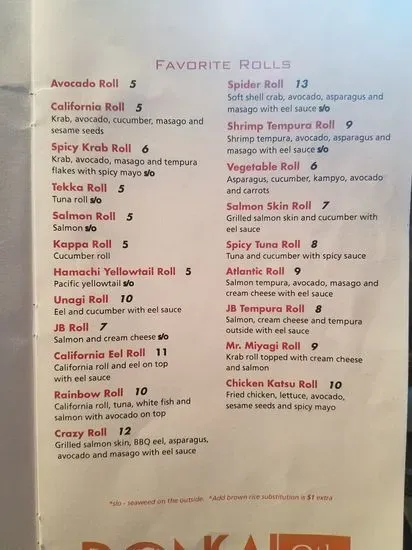 FAVORITE ROLLS
Avocado Roll 5
California Roll 5
Krab, avocado, cucumber, masago and
sesame seeds
Spicy Krab Roll 6
Krab, avocado, masago and tempura
flakes with spicy mayo s/o
Tekka Roll 5
Tuna roll s/o
Salmon Roll 5
Salmon s/o
Kappa Roll 5
Cucumber roll
Hamachi Yellowtail Roll 5
Pacific yellowtail s/o
Unagi Roll 10
Eel and cucumber with eel sauce
JB Roll 7
Salmon and cream cheese s/o
California Eel Roll 11
California roll and eel on top
with eel sauce
Rainbow Roll 10
California roll, tuna, white fish and
salmon with avocado on top
Crazy Roll 12
Grilled salmon skin, BBQ eel, asparagus,
avocado and masago with eel sauce
Spider Roll 13
Soft shell crab, avocado, asparagus and
masago with eel sauce s/o
Shrimp Tempura Roll 9
Shrimp tempura, avocado, asparagus and
masago with eel sauce s/o
Vegetable Roll 6
Asparagus, cucumber, kampyo, avocado
and carrots
Salmon Skin Roll 7
Grilled salmon skin and cucumber with
eel sauce
Spicy Tuna Roll 8
Tuna and cucumber with spicy sauce
Atlantic Roll 9
Salmon tempura, avocado, masago and
cream cheese with eel sauce
JB Tempura Roll 8
Salmon, cream cheese and tempura
outside with eel sauce
Mr. Miyagi Roll 9
Krab roll topped with cream cheese
and salmon
Chicken Katsu Roll 10
Fried chicken, lettuce, avocado,
sesame seeds and spicy mayo
*s/o - seaweed on the outside. *Add brown rice substitution is $1 extra